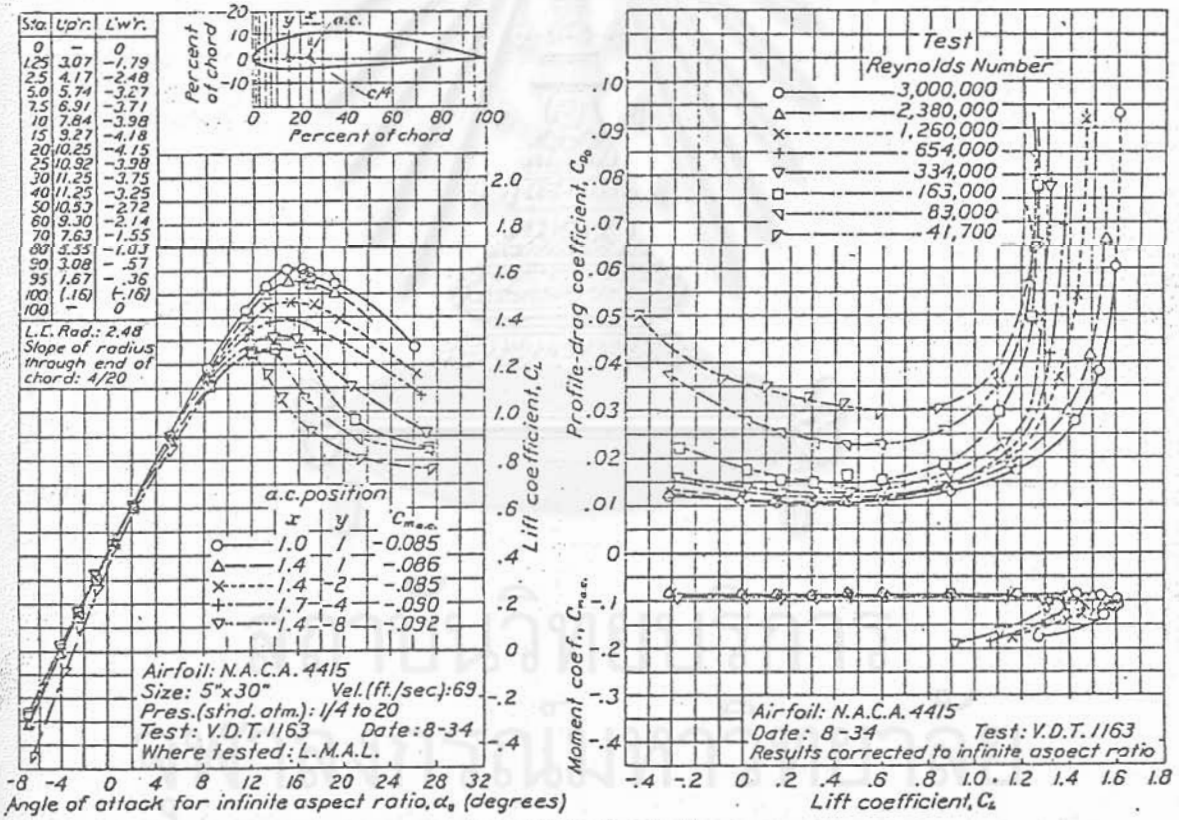 Sta. Up'r. L'w'r.
0 – 0
1.25 3.07 -1.79
2.5 4.17 -2.48
5.0 5.74 -3.27
7.5 6.91 -3.71
10 7.84 -3.98
15 9.27 -4.18
20 10.25 -4.15
25 10.92 -3.98
30 11.25 -3.75
40 11.25 -3.25
50 10.53 -2.72
60 9.30 -2.14
70 7.63 -1.55
80 5.55 -1.03
90 3.08 -.57
95 1.67 -.36
100 (.16) (-.16)
100 – 0
L.E. Rad.: 2.48
Slope of radius
through end of
chord: 4/20
Percent of chord
20
10
0
-10
y x a.c.
c/4
0 20 40 60 80 100
Percent of chord
2.0
1.8
1.6
1.4
1.2
1.0
.8
.6
.4
.2
0
-.2
-.4
Lift coefficient, CL
a.c. position
x y Cma.c.
1.0 1 -0.085
1.4 1 -.086
1.4 -2 -.085
1.7 -4 -.090
1.4 -8 -.092
Airfoil: N.A.C.A. 4415
Size: 5"x30" Vel.(ft./sec.): 69
Pres.(st'nd. atm.): 1/4 to 20
Test: V.D.T. 1163 Date: 8-34
Where tested: L.M.A.L.
-8 -4 0 4 8 12 16 20 24 28 32
Angle of attack for infinite aspect ratio, α₀ (degrees)
Test
Reynolds Number
3,000,000
2,380,000
1,260,000
654,000
334,000
163,000
83,000
41,700
.10
.09
.08
.07
.06
.05
.04
.03
.02
.01
0
Profile-drag coefficient, CD₀
-.1
-.2
-.3
-.4
Moment coef., Cma.c.
Airfoil: N.A.C.A. 4415
Date: 8-34 Test: V.D.T. 1163
Results corrected to infinite aspect ratio
-.4 -.2 0 .2 .4 .6 .8 1.0 1.2 1.4 1.6 1.8
Lift coefficient, CL